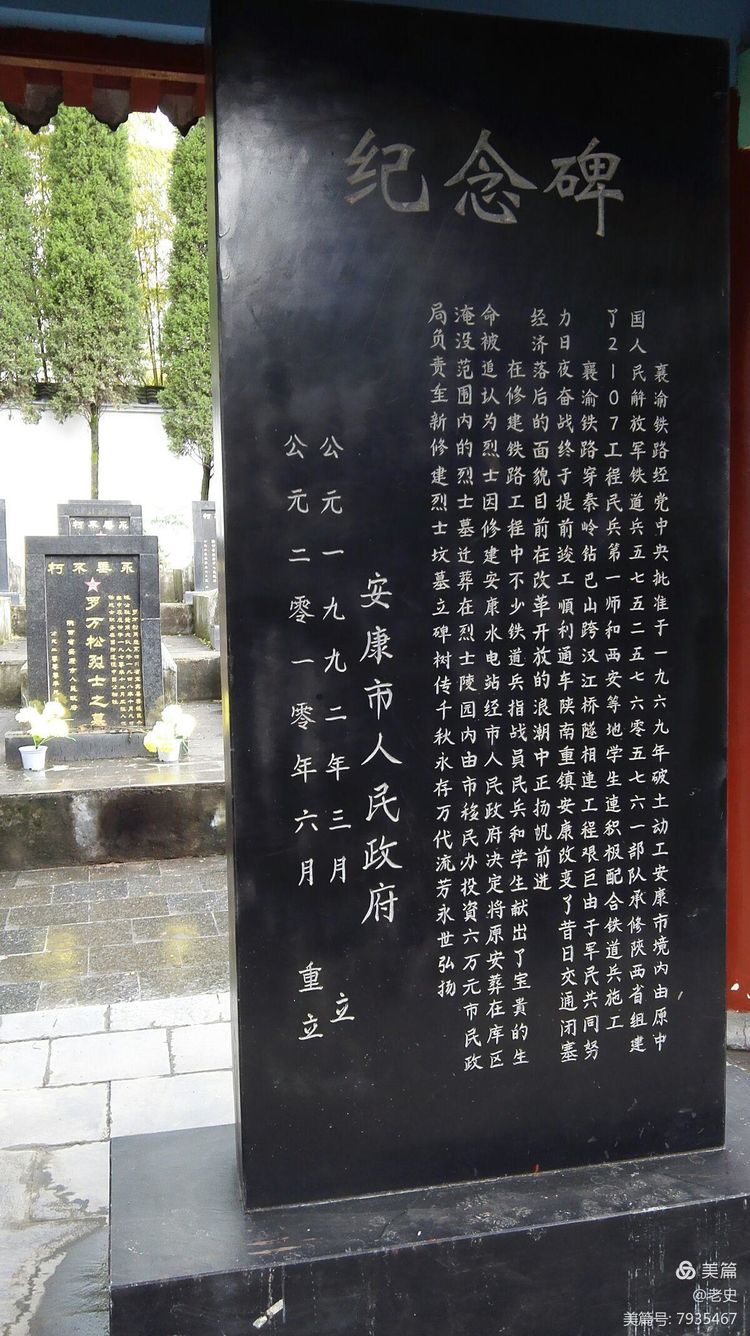 纪念碑
襄渝铁路经党中央批准于一九六九年破土动工安康市境内由原中
国人民解放军铁道兵五七五二五七六零五七六一部队承修陕西省组建
了2107工程民兵第一师和西安等地学生连积极配合铁道兵施工
襄渝铁路穿秦岭钻巴山跨汉江桥隧相连工程艰巨由于军民共同努
力日夜奋战终于提前竣工顺利通车陕南重镇安康改变了昔日交通闭塞
经济落后的面貌目前在改革开放的浪潮中正扬帆前进
在修建铁路工程中不少铁道兵指战员民兵和学生献出了宝贵的生
命被追认为烈士因修建安康水电站经市人民政府决定将原安葬在库区
淹没范围内的烈士墓迁葬在烈士陵园内由市移民办投资六万元市民政
局负责重新修建烈士坟墓立碑树传千秋永存万代流芳永世弘扬
安康市人民政府
公元一九九二年三月 立
公元二零一零年六月 重立
朽不垂永
罗万松烈士之墓
朽不垂永
美篇
@老史
美篇号: 7935467